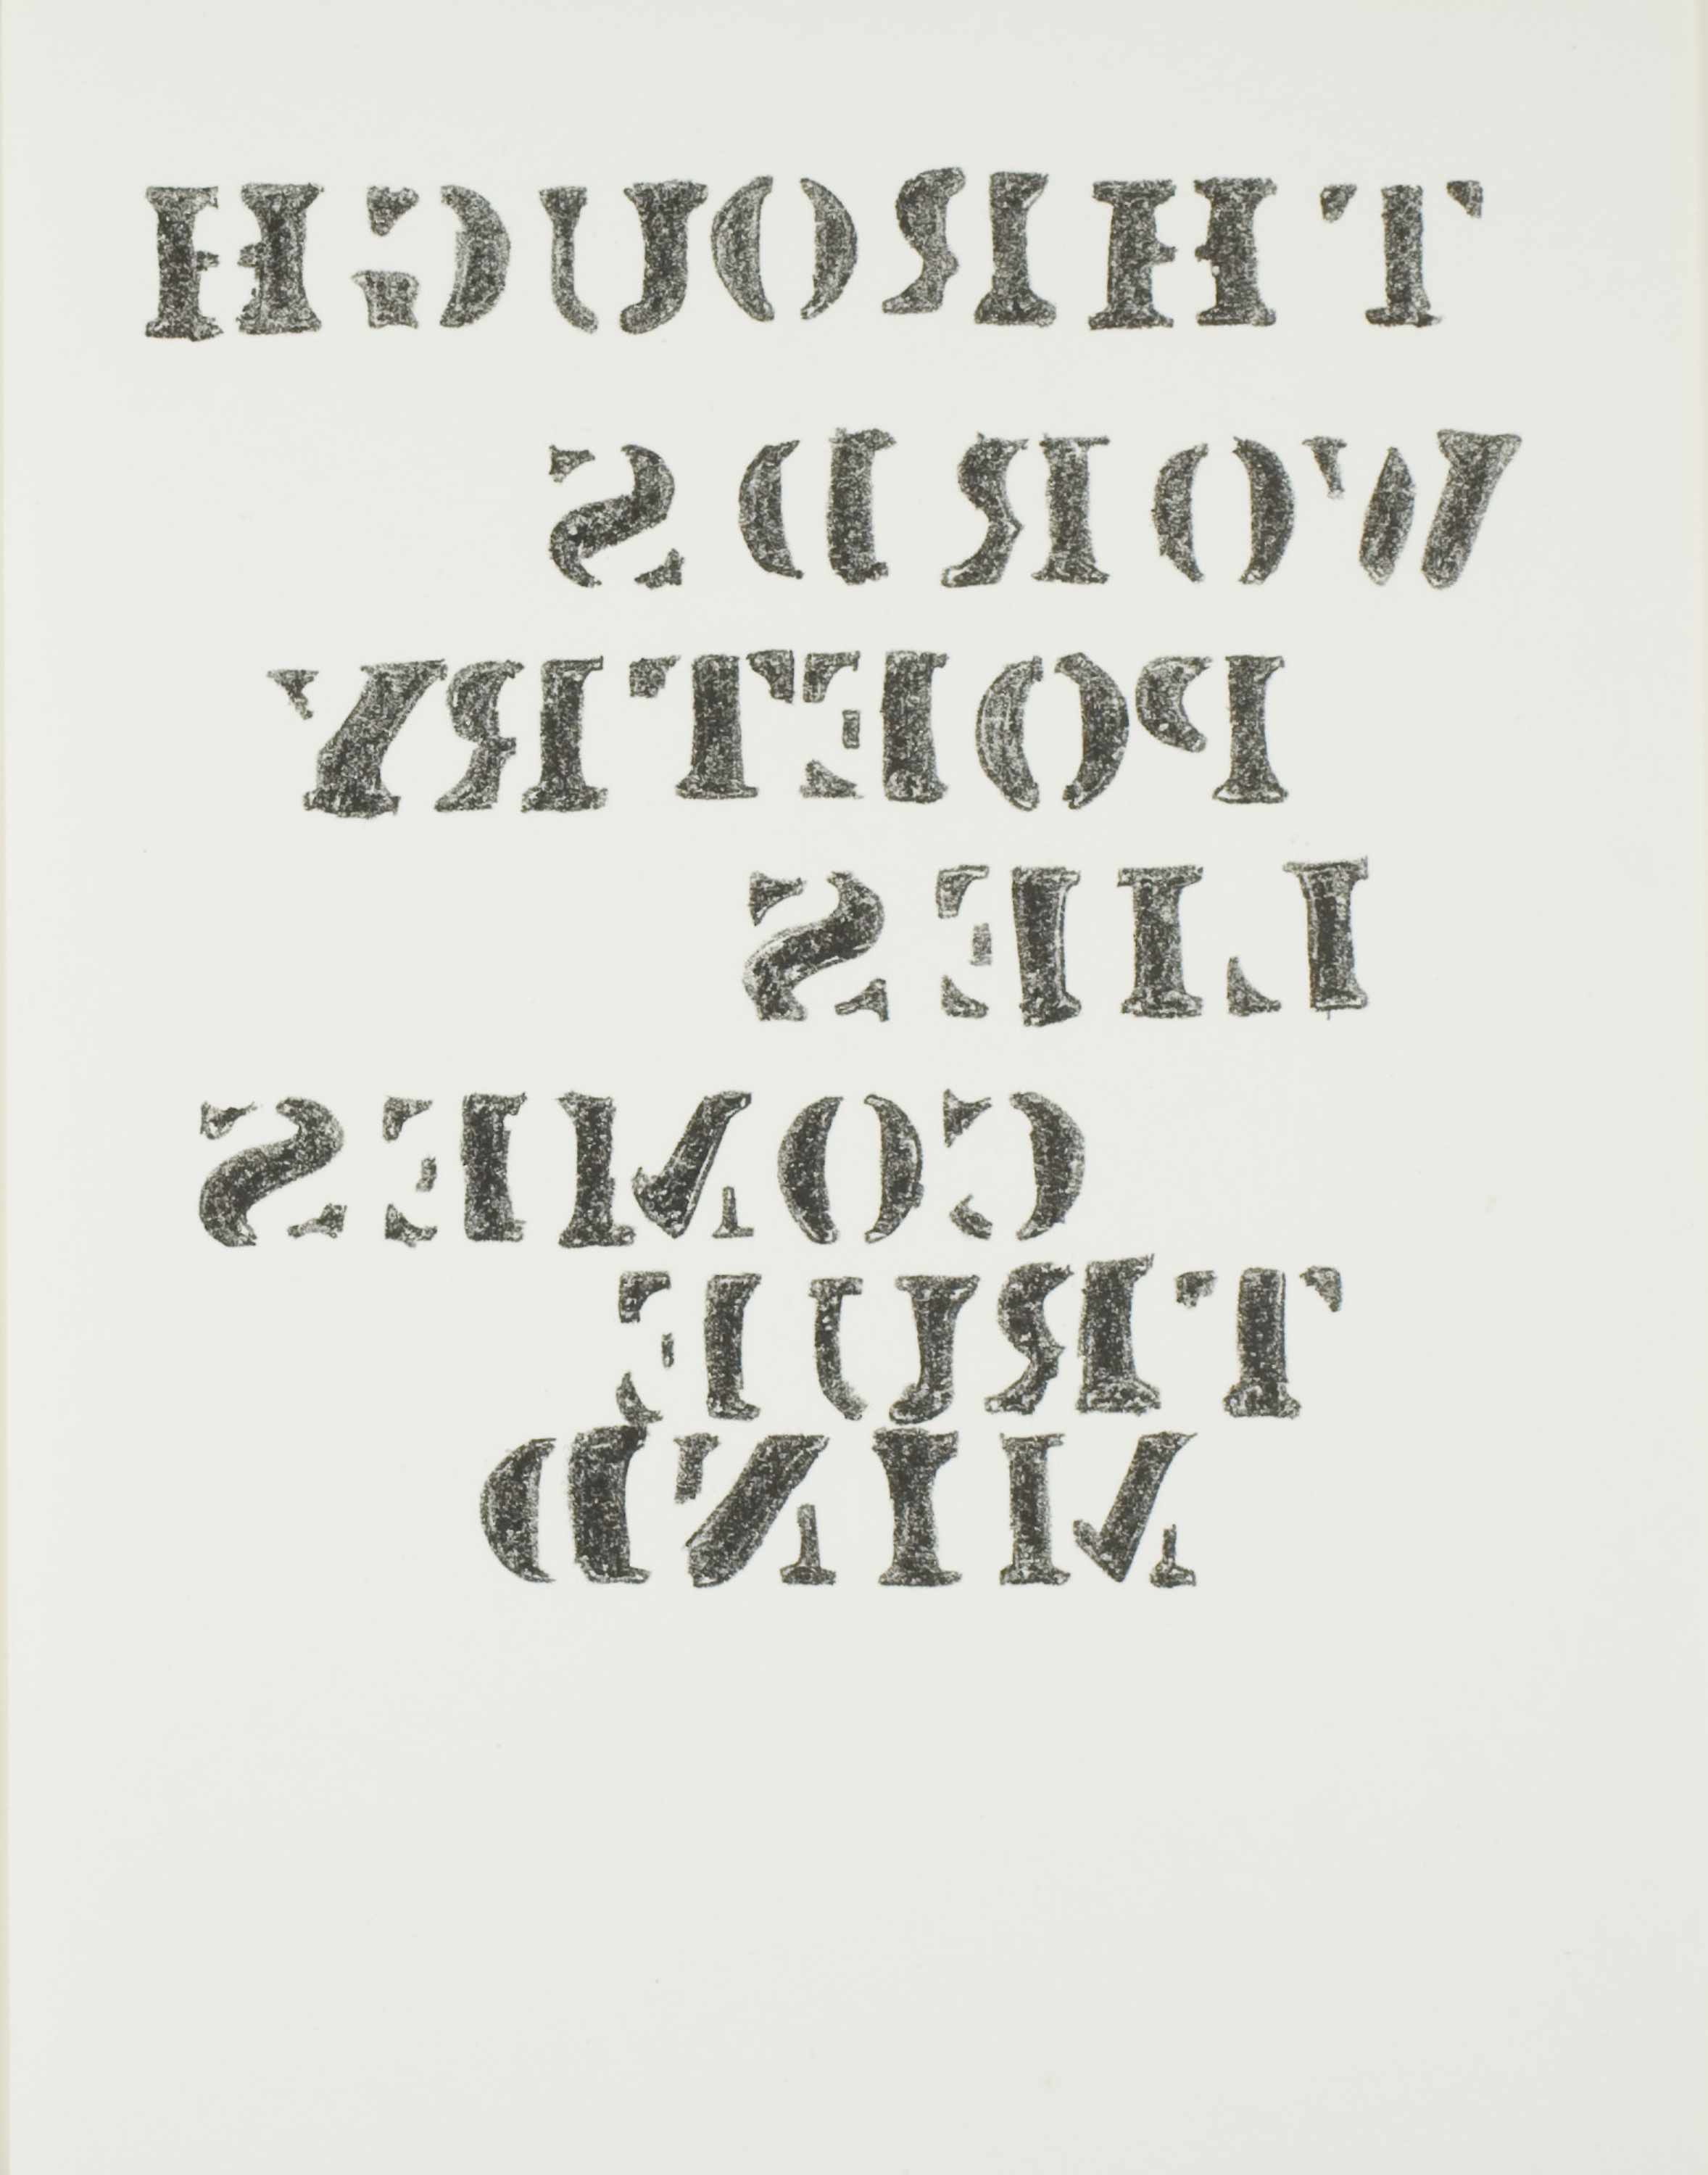 THROUGH
WORDS
POETRY
LIES
COMES
TRUE
MIND